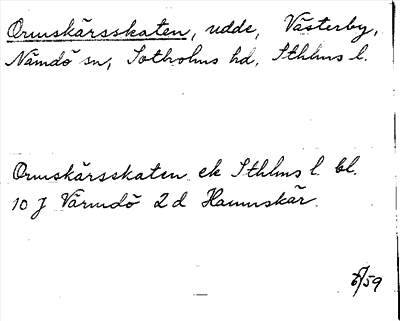 Ormskärsskaten, udde, Västerby,
Nämdö sn, Sotholms hd, Sthlms l.
Ormskärsskaten ek Sthlms l. bl.
10 J Värmdö 2 d Hamnskär.
/59